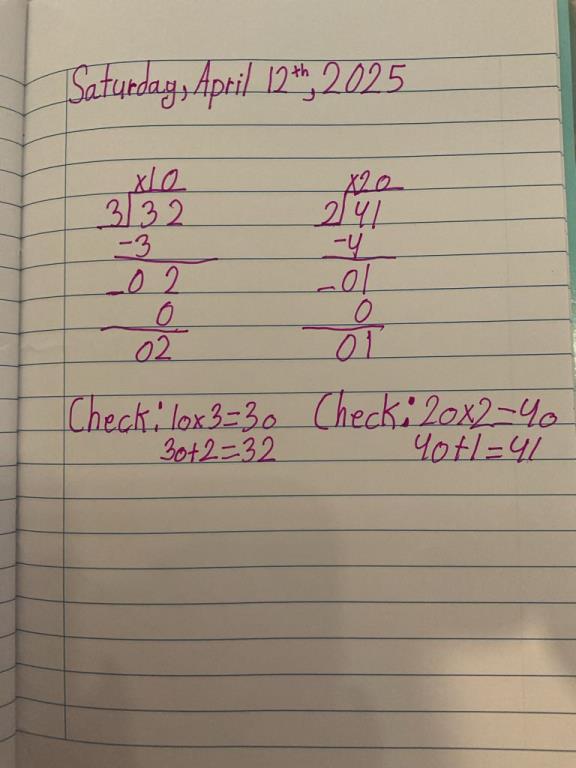 Saturday, April 12th, 2025
x10 x20
3 32 2 41
-3 -4
-02 -01
0 0
02 01
Check: 10x3=30 Check: 20x2=40
30+2=32 40+1=41